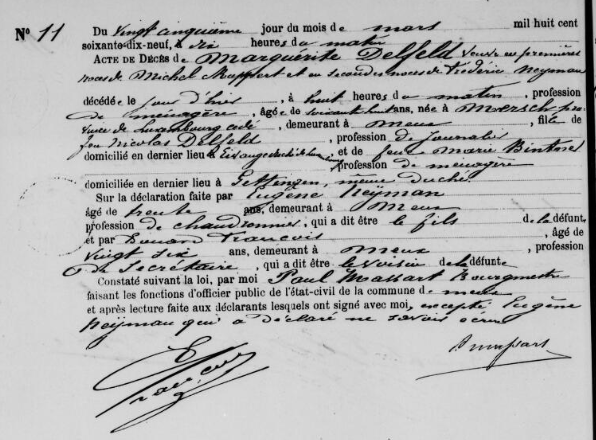 N° 11
Du vingt cinquième jour du mois de mars mil huit cent
soixante-dix-neuf, à dix heures du matin
ACTE DE DÉCÈS de Marguérite Delfeld veuve en premières
noces de Michel Mappert et en secondes noces de Frédéric Neyman
décédée le jour d'hier, à huit heures du matin, profession
de ménagère, âgée de soixante huit ans, née à Mersch pro
vince de Luxembourg cédé, demeurant à Meux, fille de
feu Nicolas Delfeld, profession de Journalier
domicilié en dernier lieu à et de feue Marie Bintner
profession de ménagère
domiciliée en dernier lieu à même duché.
Sur la déclaration faite par Eugène Neyman
âgé de trente ans, demeurant à Meux
profession de chaudronnier, qui a dit être le fils de la défunte,
et par Edouard François, âgé de
vingt six ans, demeurant à Meux, profession
de Secrétaire, qui a dit être le voisin de la défunte.
Constaté suivant la loi, par moi Paul Massart Bourgmestre
faisant les fonctions d'officier public de l'état-civil de la commune de Meux
et après lecture faite aux déclarants lesquels ont signé avec moi, excepté Eugène
Neyman qui a déclaré ne savoir écrire
E François
P Massart